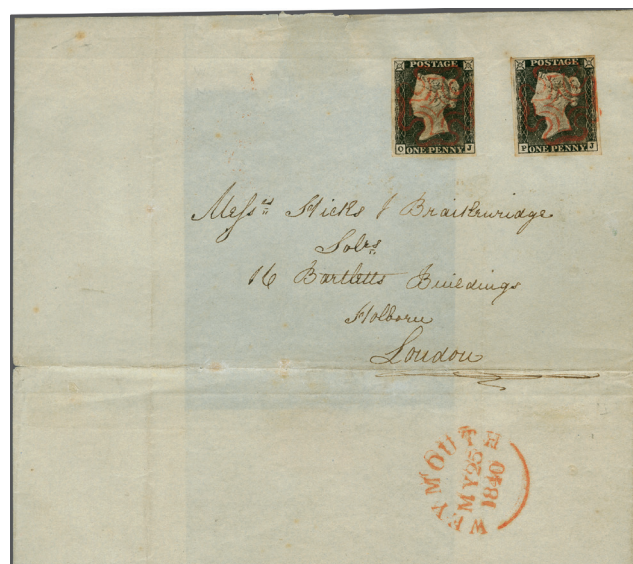 POSTAGE
O ONE PENNY J
POSTAGE
P ONE PENNY J
Messrs Hicks & Braikenridge
Solrs
16 Bartletts Buildings
Holborn
London
WEYMOUTH
MY 25
1840